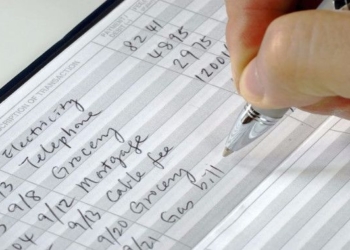 SCRIPTION OF TRANSACTION
Electricity 82 41
Telephone 48 95
9/8 Grocery 29 75
9/12 Mortgage 1200
9/13 Cable fee
9/20 Grocery
9/21 Gas bill